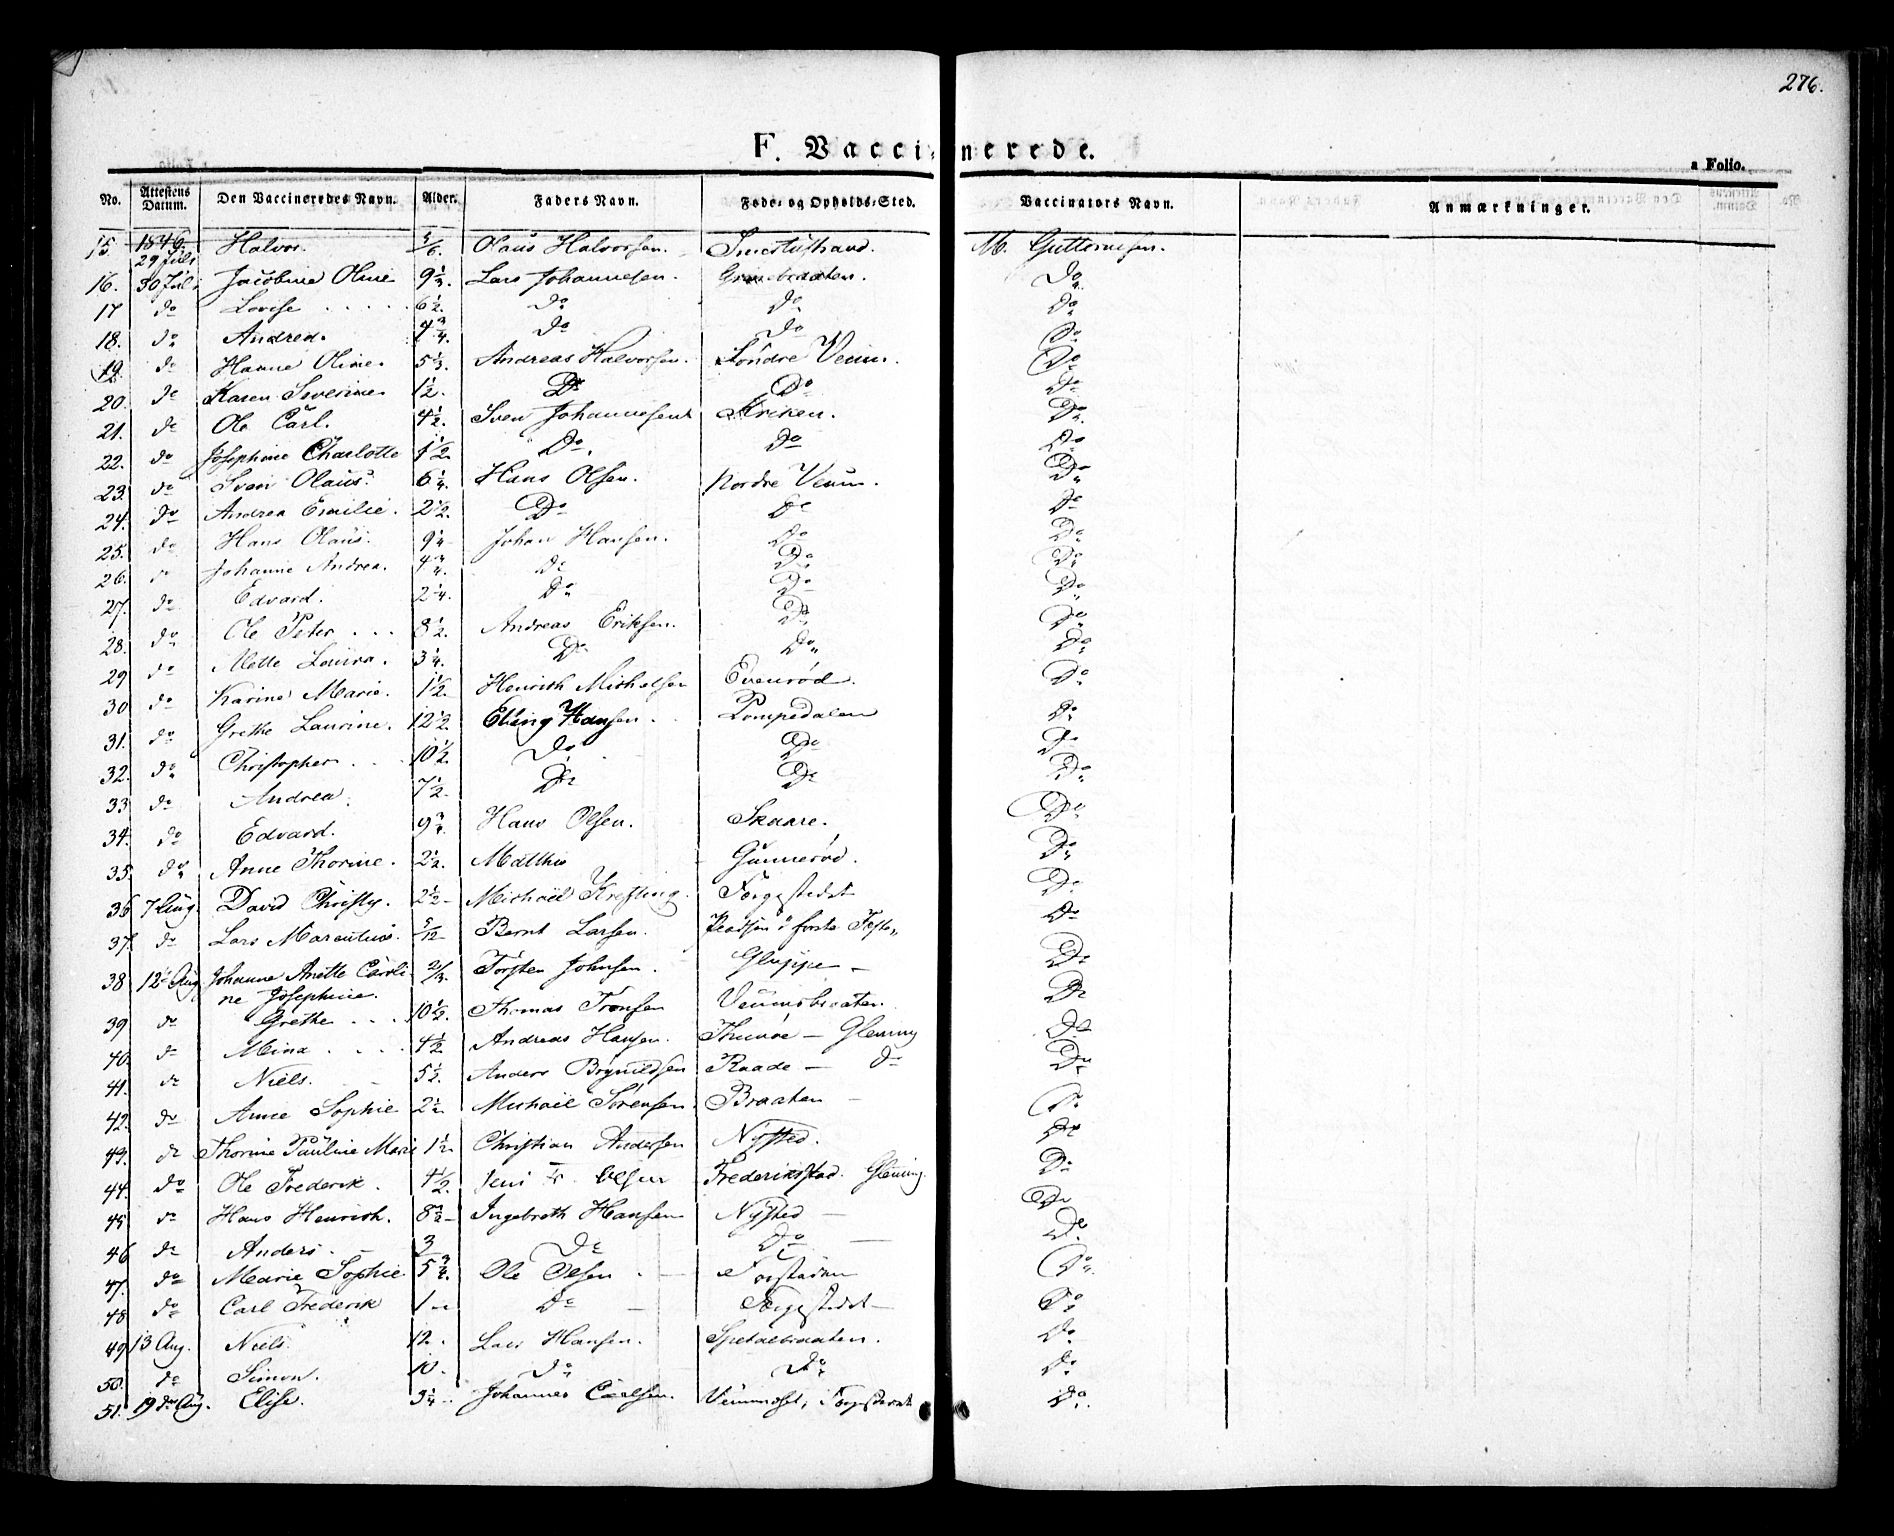 276.
F. Vaccinerede.
a Folio.
No. Attestens Datum. Den Vaccineredes Navn. Alder. Faders Navn. Føde- og Opholds-Sted. Vaccinators Navn. Anmærkninger.
15. 1846. 29 Juli Halvor. 5/6. Olaus Halvorsen. M. Guttormsen.
16. 30 Juli Jacobine Oline 9 1/2. Lars Johannesen. Grønebraaten. Do
17 do Lovise 6 1/2. Do Do Do
18. do Andrea. 4 3/4. Do Do Do
19. do Hanne Oline. 5 1/3. Andreas Halvorsen. Søndre Veum. Do
20. do Karen Severine 1 1/2. Do Do Do
21. do Ole Carl. 4 1/2. Sven Johannesen Kriken. Do
22. do Josephine Charlotte 1 1/2 Do. Do Do
23. do Sven Olaus. 6 1/4. Hans Olsen. Nordre Veum. Do
24. do Andrea Emilie. 2 1/2. Do Do Do
25. do Hans Olaus. 9 1/4 Johan Hansen. Do Do
26. do Johanne Andrea. 4 3/4. do Do Do
27. do Edvard. 2 1/4. Do Do Do
28. do Ole Peter 8 1/2. Andreas Eriksen. Do Do
29 do Mette Lovisa. 3 1/4. Do Do Do
30 do Karine Marie. 1 1/2. Henrich Michelsen Evenrød. Do
31. do Grethe Laurine. 12 1/2. Elling Hansen. Pompedalen Do
32. do Christopher 10 1/2. Do Do Do
33 do Andrea. 7 1/2. Do Do Do
34. do Edvard. 9 3/4. Hans Olsen. Skaare. Do
35. do Anne Thorine. 2 1/2. Matthis Gunnerød. Do
36 7 Aug. David Christly. 2 1/2 Michael Krefting. Torgestedet Do
37. do Lars Marentius. 5/12 Bernt Larsen. Do
38 12 Aug. Johanne Anette Caroli- 2/3. Torsten Johnsen. Gluppe Do
ne Josephine.
39 do Grethe 10 1/2. Thomas Tronsen Veumsbraaten. Do
40. do Mina 4 1/2 Andreas Hansen. Thunøe - Glemmg Do
41. do Niels. 5 1/2. Anders Brynildsen Raade - do Do
42. do Anne Sophie 2 1/2 Michael Sørensen. Braaten Do
43. do Thorine Pauline Marie 1 1/2 Christian Andersen Nysted. Do
44. do Ole Frederik. 4 1/2. Jens Fr. Olsen Frederiksstad. Glemmg. Do
45 do Hans Henrich. 8 1/2 Ingebreth Hansen Nysted Do
46 do Anders. 3 Do Do Do
47. do Marie Sophie 5 3/4. Ole Olsen. Forstaden Do
48 do Carl Frederik 1 Do Torgestedet Do
49 13 Aug. Niels. 12. Lars Hansen. Spetalbraaten. Do
50. do Simon. 10. Do Do Do
51. 19 Aug. Elise. 3 1/4 Johannes Carlsen. Do